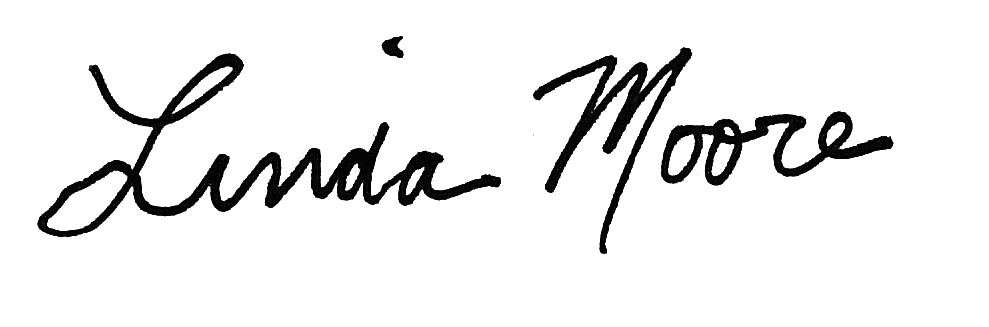 Linda Moore